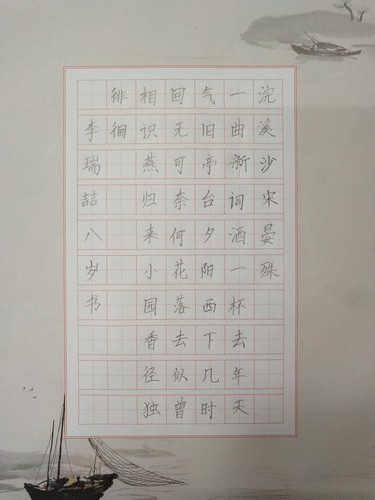 浣溪沙宋晏殊
一曲新词酒一杯去年天
气旧亭台夕阳西下几时
回无可奈何花落去似曾
相识燕归来小园香径独
徘徊
李瑞喆八岁书